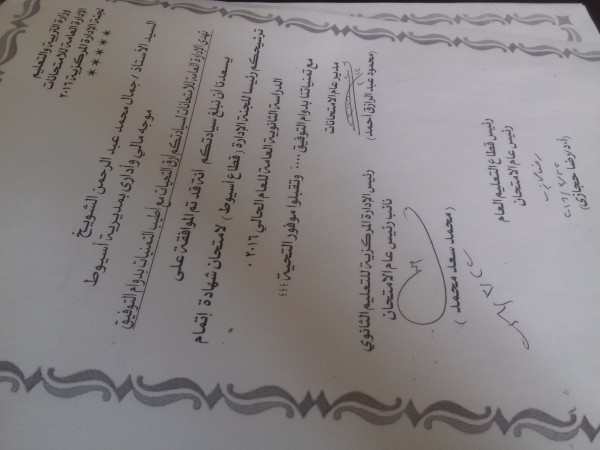 وزارة التربية والتعليم
الإدارة العامة للامتحانات
لجنة الإدارة المركزية ٢٠١٦
*****
السيد الأستاذ / جمال محمد عبد الرحمن الشويخ
موجه مالي وأدارى بمديرية أسيوط
تهدى الإدارة العامة للامتحانات لسيادتكم أرق التحيات مع أطيب التمنيات بدوام التوفيق
يسعدنا ان نبلغ سيادتكم انة قد تم الموافقة على
ترشيحكم رئيسا للجنة الإدارة ( قطاع اسيوط ) لامتحان شهادة إتمام
الدراسة الثانوية العامة للعام الحالي ٢٠١٦ ٠
مع تمنياتنا بدوام التوفيق ،،،، وتقبلوا موفور التحية ؛؛؛
مدير عام الامتحانات
(محمود عبد الرازق احمد)
رئيس الإدارة المركزية للتعليم الثانوي
نائب رئيس عام الامتحان
( محمد سعد محمد )
رئيس قطاع التعليم العام
رئيس عام الامتحان
(د/رضا حجازى)